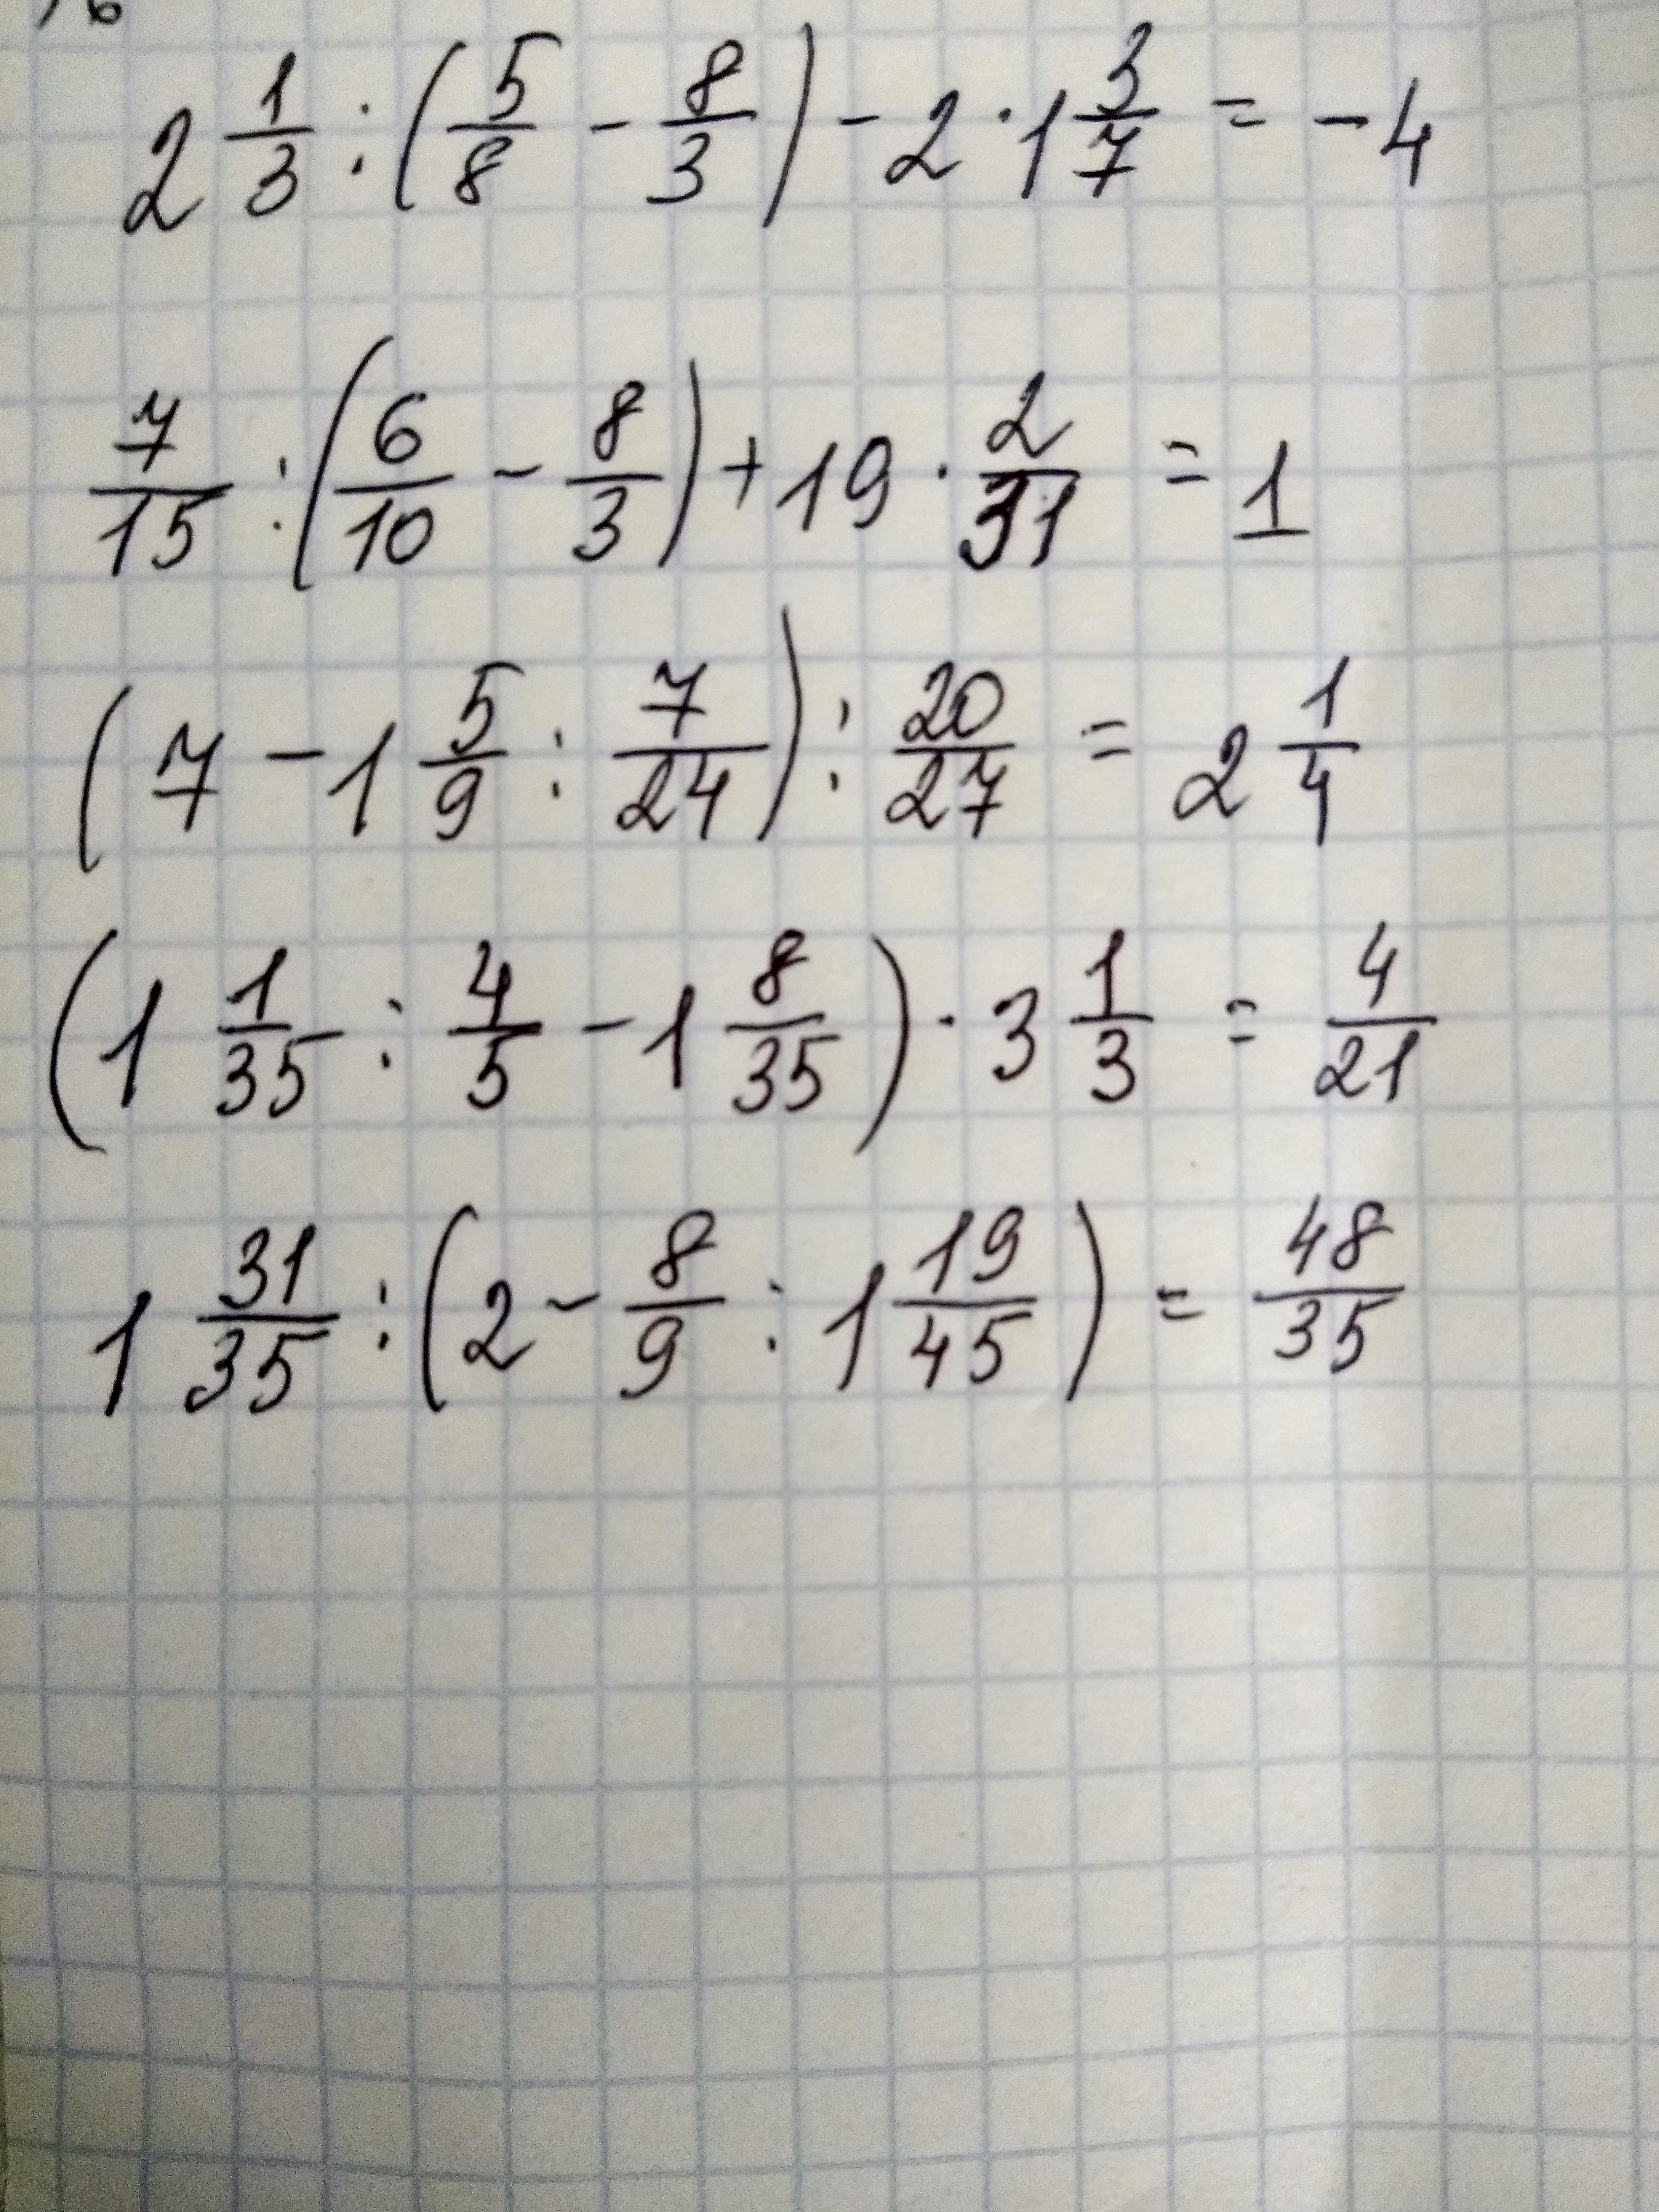 2 1/3 : (5/8 - 8/3) - 2 · 1 3/7 = -4
7/15 : (6/10 - 8/3) + 19 · 2/31 = 1
(7 - 1 5/9 : 7/24) : 20/27 = 2 1/4
(1 1/35 : 4/5 - 1 8/35) · 3 1/3 = 4/21
1 31/35 : (2 - 8/9 : 1 19/45) = 48/35